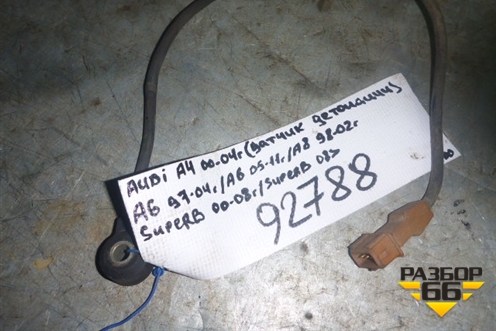 AUDi A4 00-04г (ДАТЧИК ДЕТОНАЦИИ)
A6 97-04г/A6 05-11г/A8 98-02г
SuperB 00-08г/SuperB 08>
92788
РАЗБОР
66